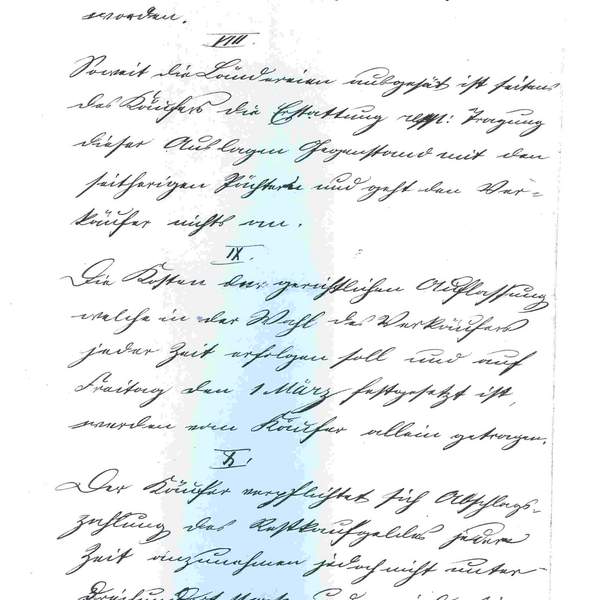 worden.
VIII.
Soweit die Ländereien ausgesät ist seitens
des Käufers die Erstattung resp: Tragung
dieser Auslagen Gegenstand mit den
seitherigen Pächtern und geht den Ver-
käufer nichts an.
IX.
Die Kosten der gerichtlichen Auflassung
welche in der Wahl des Verkäufers
jeder Zeit erfolgen soll und auf
Freitag den 1 März festgesetzt ist,
werden vom Käufer allein getragen.
X.
Der Käufer verpflichtet sich Abschlags-
zahlung des Restkaufgeldes jeder
Zeit anzunehmen jedoch nicht unter